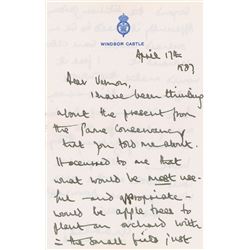 WINDSOR CASTLE
April 17th
1989
Dear Vernon,
I have been thinking
about the present from
the Game Conservancy
that you told me about.
It occurred to me that
what would be most use-
ful - and appropriate -
would be apple trees to
plant an orchard with
in the small field just